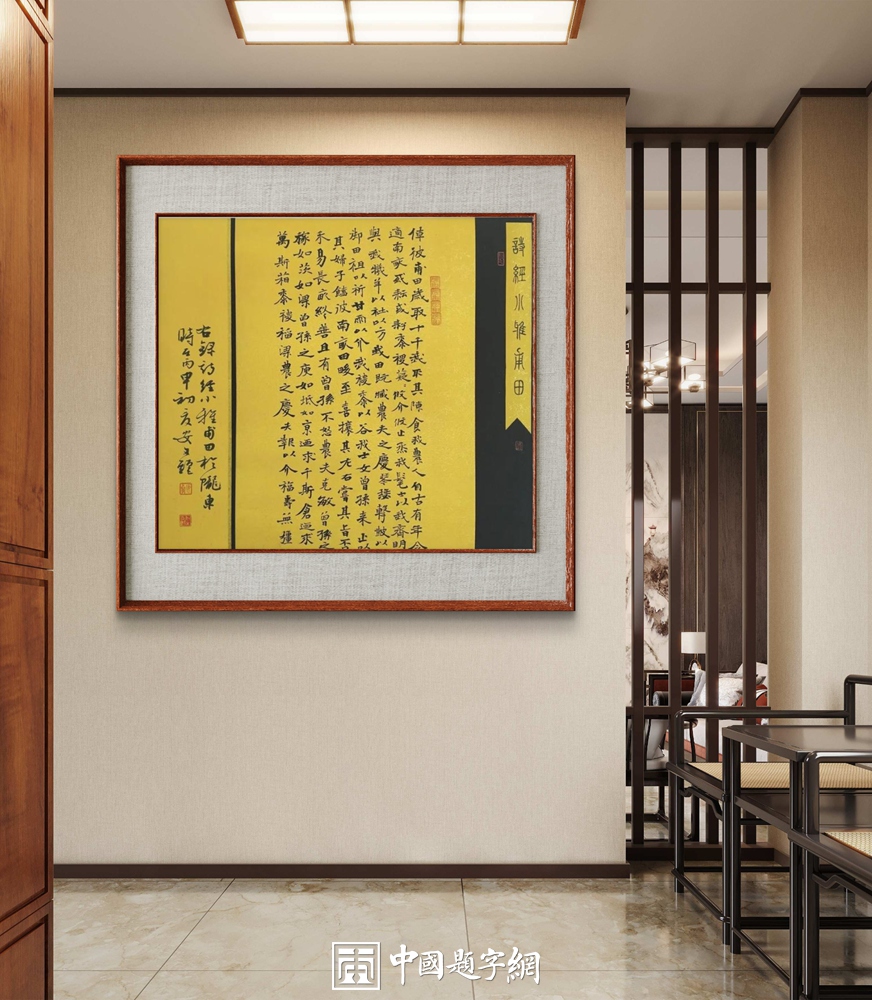 詩經小雅甫田
倬彼甫田歲取十千我取其陳食我農人自古有年今
適南畝或耘或耔黍稷薿攸介攸止烝我髦士以我齊明
與我犧羊以社以方我田既臧農夫之慶琴瑟擊鼓以
御田祖以祈甘雨以介我稷黍以谷我士女曾孫來止以
其婦子饁彼南畝田畯至喜攘其左右嘗其旨否
禾易長畝終善且有曾孫不怒農夫克敏曾孫之
稼如茨如梁曾孫之庾如坻如京乃求千斯倉乃求
萬斯箱黍稷稻粱農之慶夫報以介福壽無疆
右錄詩經小雅甫田於隴東
時在丙申初夏安文
中國題字網